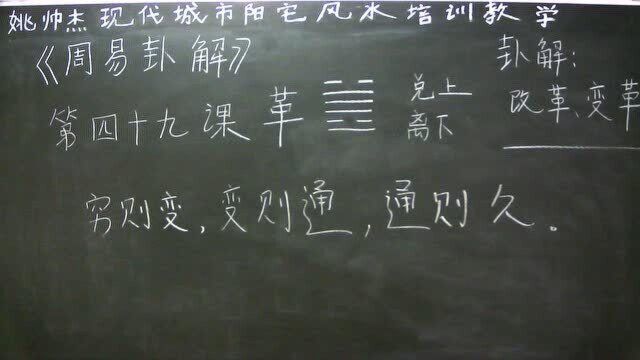 姚帅杰现代城市阳宅风水培训教学
《周易卦解》
第四十九课 革 兑上
离下
卦解:
改革、变革
穷则变,变则通,通则久。